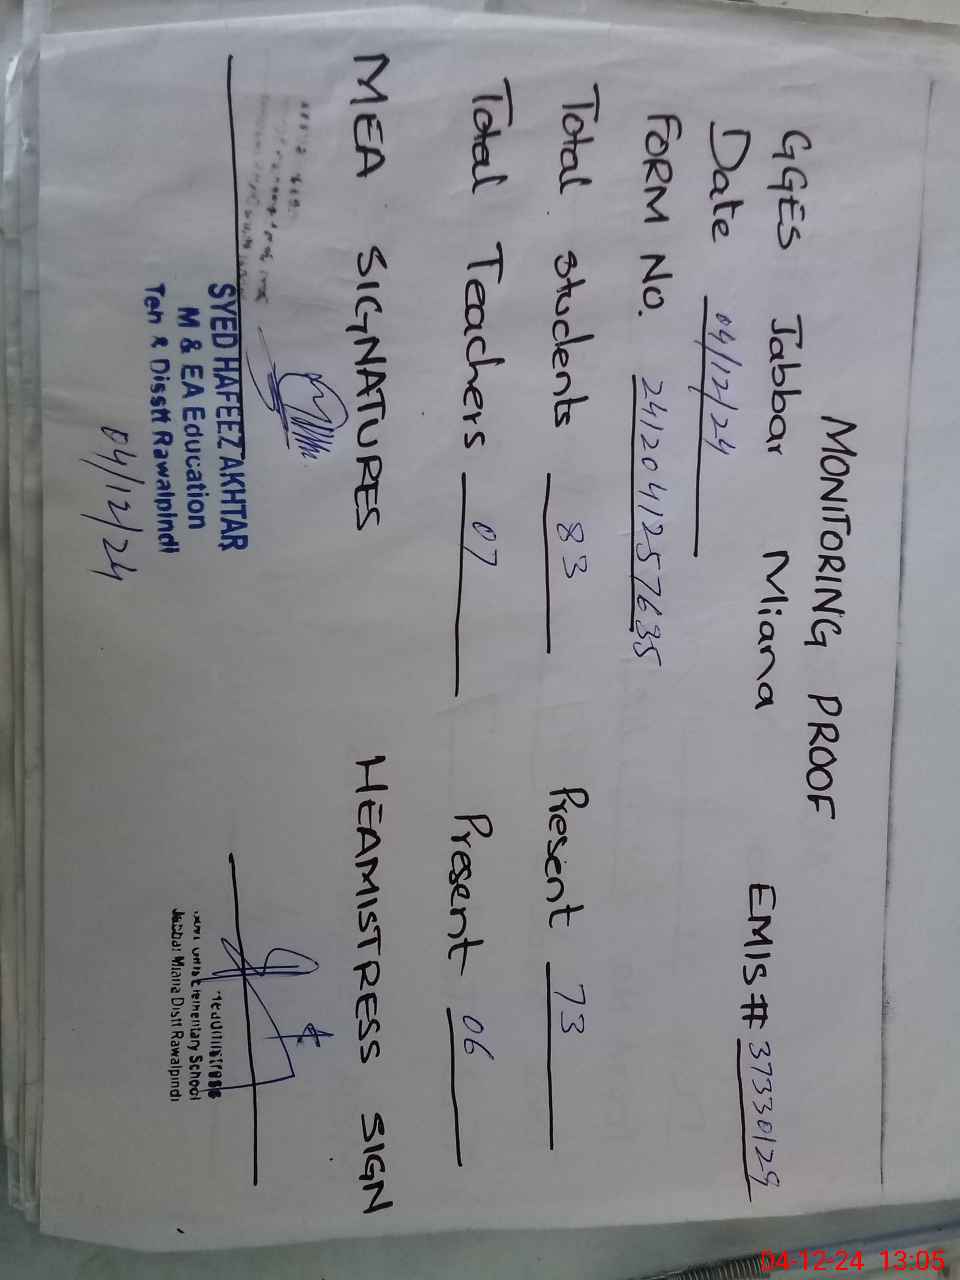 MONITORING PROOF
GGES Jabbar Miana EMIS # 37330129
Date 04/12/24
FORM No. 2412041257635
Total students 83 Present 73
Total Teachers 07 Present 06
MEA SIGNATURES HEAMISTRESS SIGN
SYED HAFEEZ AKHTAR
M & EA Education
Teh & Disstt Rawalpindi
04/12/24
Headmistress
Elementary School
Jabbar Miana Distt Rawalpindi
04-12-24 13:05